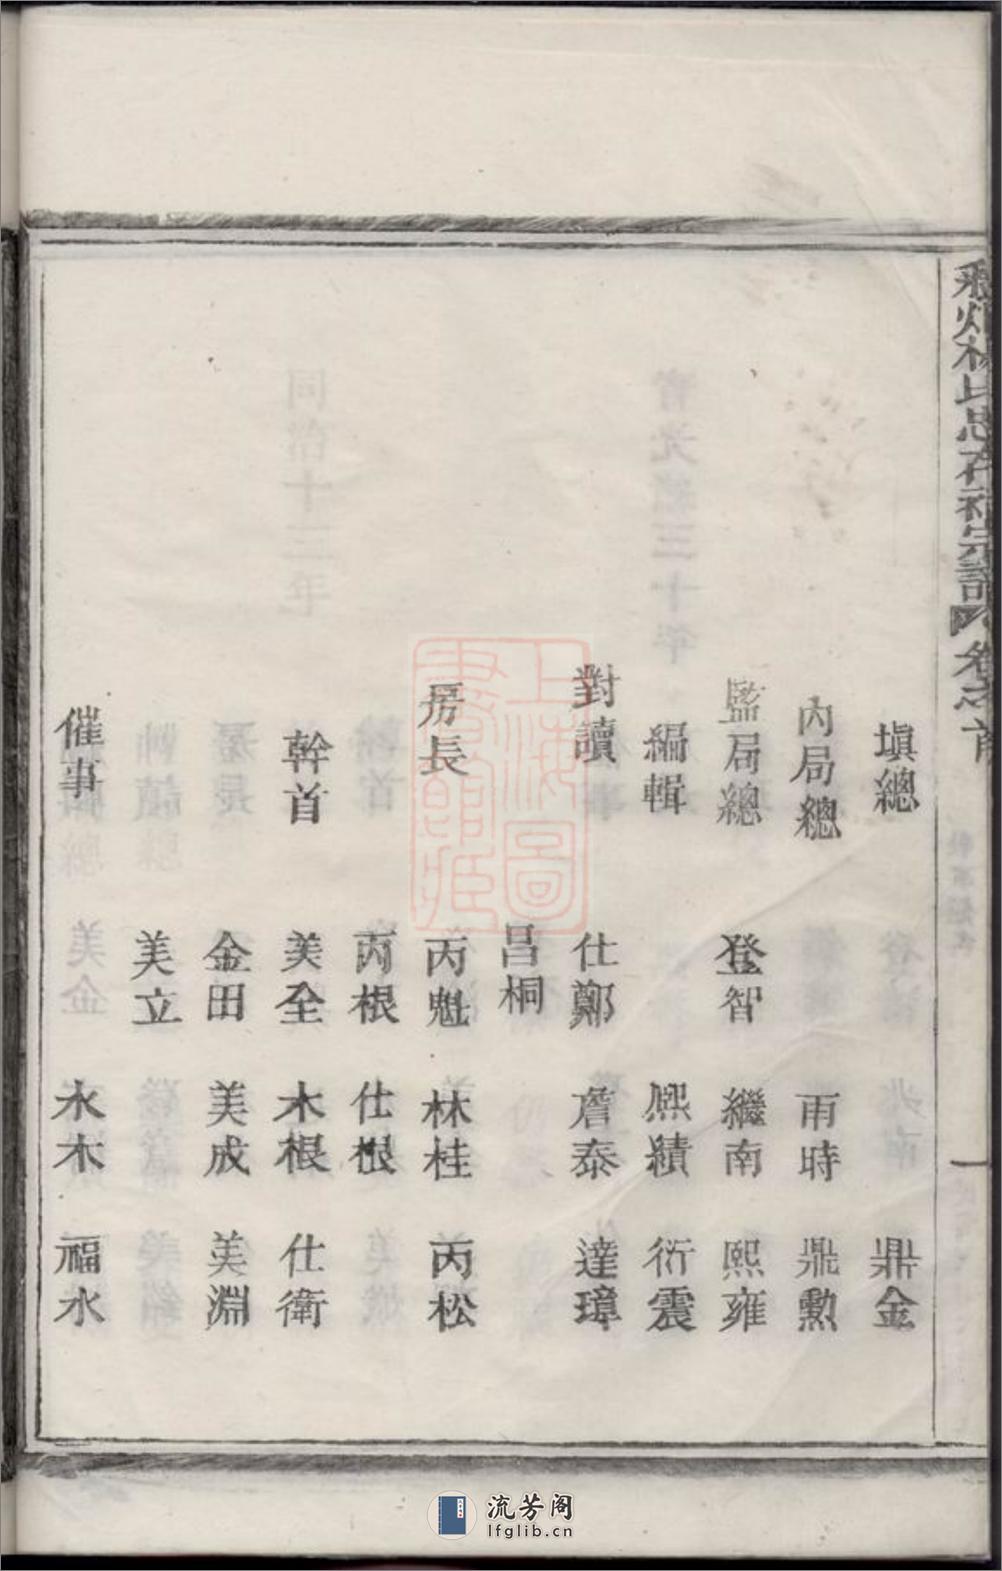 林氏忠孝祠宗譜 卷之首
一
塡總 鼎金
內局總 雨時 鼎勲
監局總 登智 繼南 熙雍
編輯 熈績 衍震
對讀 仕鄭 詹泰 達璋
昌桐
房長 丙魁 林桂 丙松
丙根 仕根
幹首 美全 木根 仕衛
金田 美成 美淵
美立
催事 永木 福水
上海圖書館藏
流芳阁
lfglib.cn